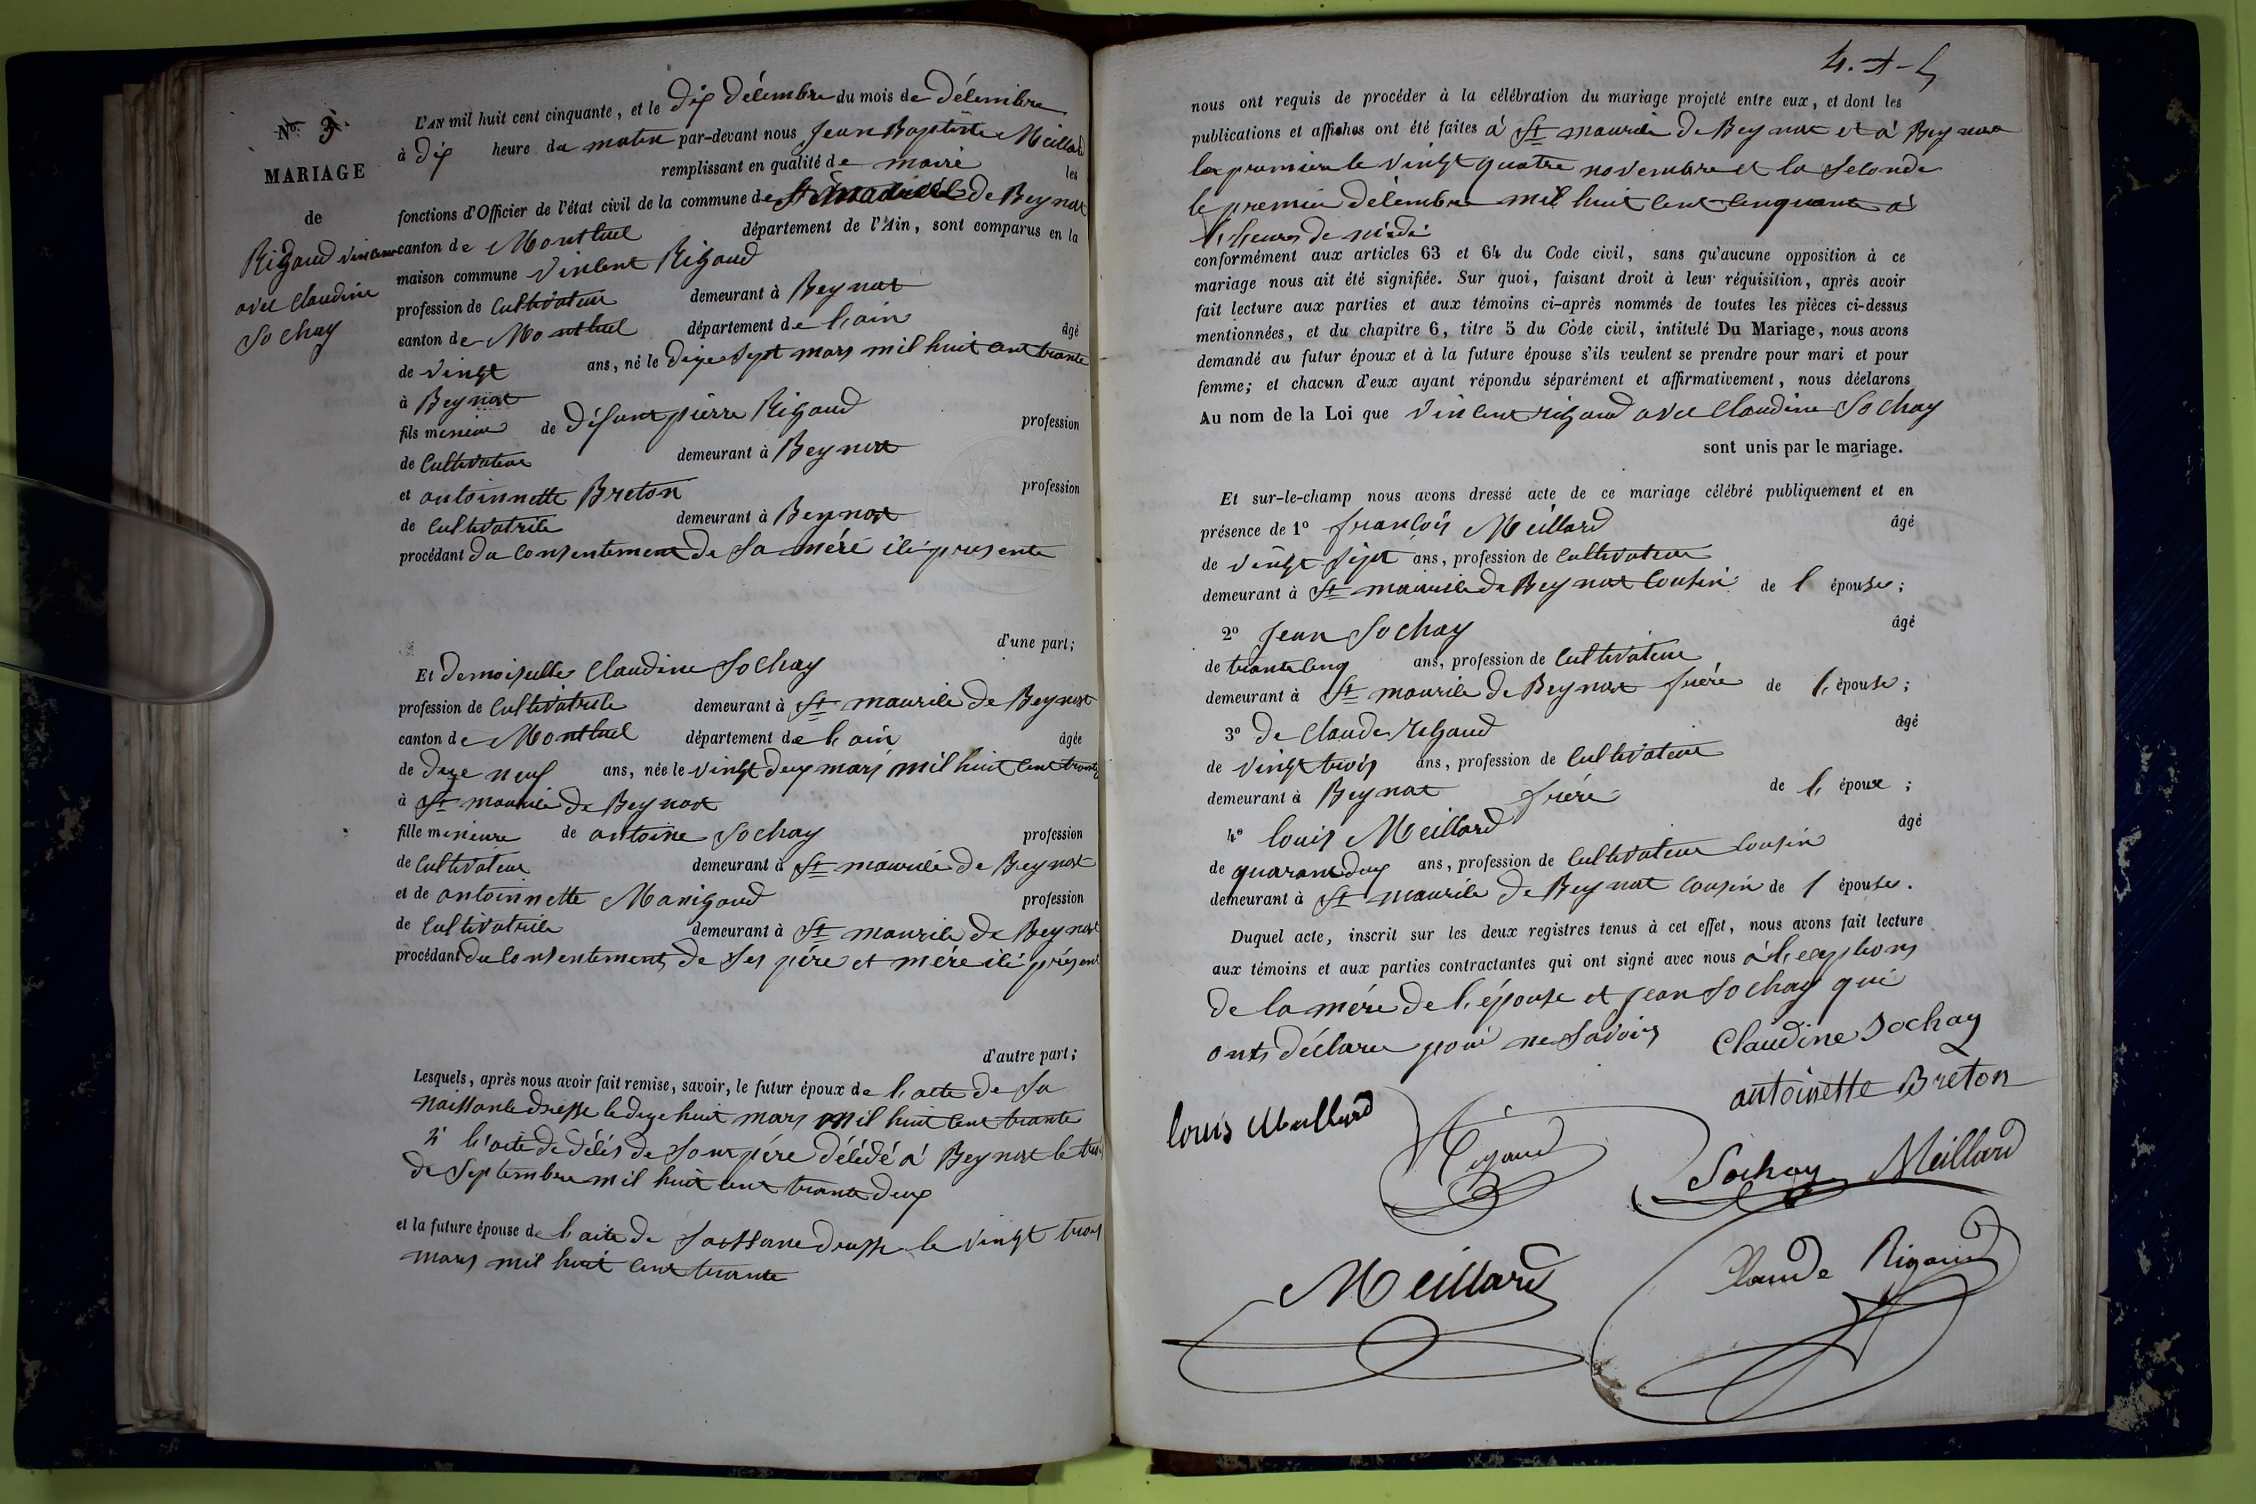 N° 3
MARIAGE
de
Rigaud vincent
avec Claudine
Sochay
L'AN mil huit cent cinquante, et le dix décembre du mois de décembre
à dix heure du matin par-devant nous Jean Baptiste Meillard
remplissant en qualité de maire les
fonctions d'Officier de l'état civil de la commune de St maurice de Beynost
canton de Montluel département de l'Ain, sont comparus en la
maison commune Vincent Rigaud
profession de Cultivateur demeurant à Beynost
canton de Montluel département de l'ain âgé
de vingt ans, né le dixe sept mars mil huit cent trante
à Beynost
fils mineur de défunt pierre Rigaud profession
de Cultivateur demeurant à Beynost
et antoinnette Breton profession
de Cultivatrice demeurant à Beynost
procédant du consentement de sa mère ici présente
d'une part;
Et demoiselle Claudine Sochay
profession de Cultivatrice demeurant à St maurice de Beynost
canton de Montluel département de l'ain âgée
de dixe neuf ans, née le vingt deux mars mil huit cent trante
à St maurice de Beynost
fille mineure de antoine Sochay profession
de Cultivateur demeurant à St maurice de Beynost
et de antoinnette Manigaud profession
de Cultivatrice demeurant à St maurice de Beynost
procédant du consentement de ses père et mère ici présent
d'autre part;
Lesquels, après nous avoir fait remise, savoir, le futur époux de l'acte de sa
naissance dresse le dixe huit mars mil huit cent trante
2° l'acte de décès de son père décédé à Beynost le
de septembre mil huit cent trante deux
et la future épouse de l'acte de le vingt trois
mars mil huit cent trante
nous ont requis de procéder à la célébration du mariage projeté entre eux, et dont les
publications et affiches ont été faites à St maurice de Beynost et à Beynost
la premier le vingt quatre novembre et la seconde
le premier décembre mil huit cent cinquante à
l'heure de midi
conformément aux articles 63 et 64 du Code civil, sans qu'aucune opposition à ce
mariage nous ait été signifiée. Sur quoi, faisant droit à leur réquisition, après avoir
fait lecture aux parties et aux témoins ci-après nommés de toutes les pièces ci-dessus
mentionnées, et du chapitre 6, titre 5 du Code civil, intitulé Du Mariage, nous avons
demandé au futur époux et à la future épouse s'ils veulent se prendre pour mari et pour
femme; et chacun d'eux ayant répondu séparément et affirmativement, nous déclarons
Au nom de la Loi que Vincent rigaud avec Claudine Sochay
sont unis par le mariage.
Et sur-le-champ nous avons dressé acte de ce mariage célébré publiquement et en
présence de 1° françois Meillard âgé
de vingt sept ans, profession de Cultivateur
demeurant à St maurice de Beynost cousin de l épouse;
2° Jean Sochay âgé
de trante cinq ans, profession de Cultivateur
demeurant à St maurice de Beynost frère de l'épouse;
3° de Claude rigaud âgé
de vingt trois ans, profession de Cultivateur
demeurant à Beynost frère de l'époux;
4° louis Meillard âgé
de quarante deux ans, profession de Cultivateur cousin
demeurant à St maurice de Beynost cousin de l épouse.
Duquel acte, inscrit sur les deux registres tenus à cet effet, nous avons fait lecture
aux témoins et aux parties contractantes qui ont signé avec nous à l'exceptions
de la mère de l'épouse et jean Sochay qui
onts déclare pour ne savoir
Claudine Sochay
antoinette Breton
louis Meillard
Rigaud
Sochay Meillard
Meillard
Claude Rigaud